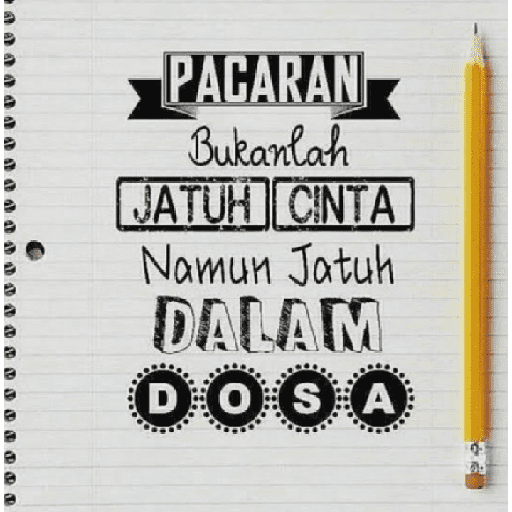 PACARAN
Bukanlah
JATUH CINTA
Namun Jatuh
DALAM
DOSA